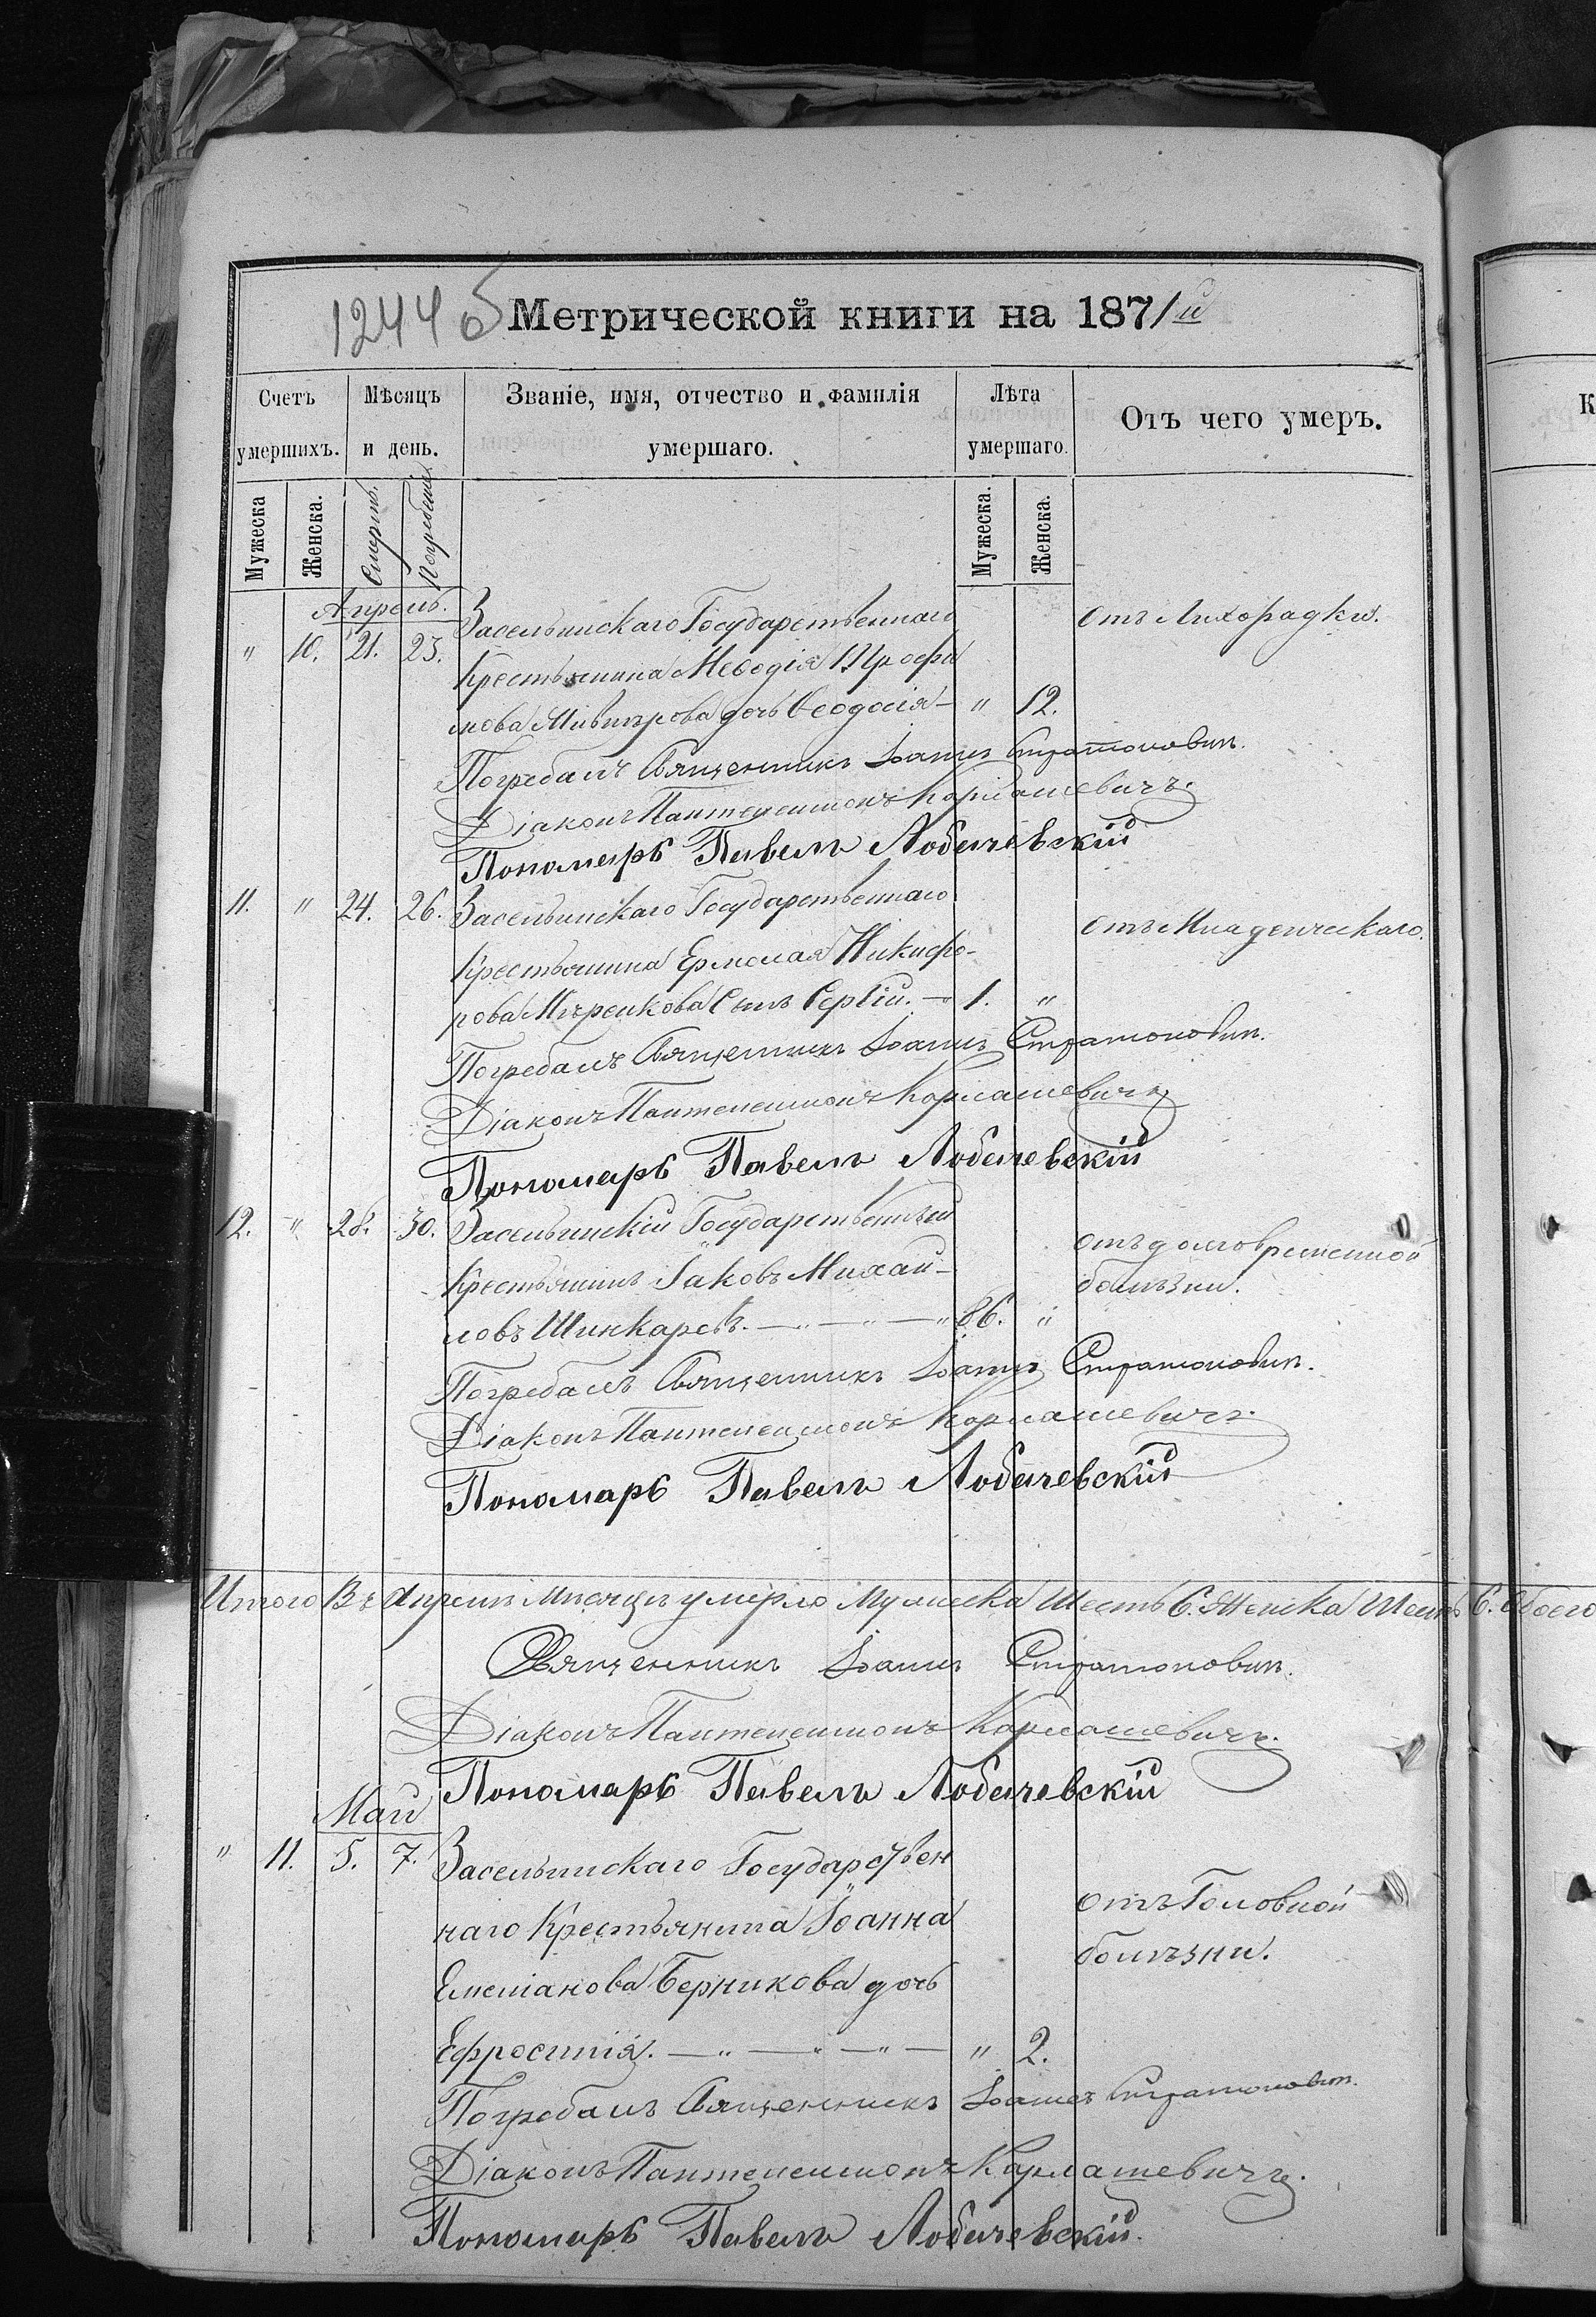 1244 об
Метрической книги на 1871й
Счетъ умершихъ.
Мѣсяцъ и день.
Званіе, имя, отчество и фамилія умершаго.
Лѣта умершаго.
Отъ чего умеръ.
Мужеска
Женска.
Смерть.
Погребеніе
Мужеска.
Женска.
Апрель.
" 10. 21. 23. Засельинскаго Государственнаго
отъ Лихорадки.
Крестьянина Меѳодія
мова дочь Ѳеодосія — " 12.
Погребалъ Священникъ Іоаннъ Стратоновичъ.
Діаконъ Пантелеимонъ Карлашевичъ.
Пономарь Павелъ Лобачевскій
11. " 24. 26. Засельинскаго Государственнаго
отъ Младенческаго.
Крестьянина Ермолая Никифо-
рова Сынъ Сергій. — 1. "
Погребалъ Священникъ Іоаннъ Стратоновичъ.
Діаконъ Пантелеимонъ Карлашевичъ
Пономарь Павелъ Лобачевскій
12. " 28. 30. Засельинскій Государственный
отъ долговременной
Крестьянинъ Іаковъ Михай-
болѣзни.
ловъ Шинкаревъ. — " — " — " 86. "
Погребалъ Священникъ Іоаннъ Стратоновичъ.
Діаконъ Пантелеимонъ Карлашевичъ.
Пономарь Павелъ Лобачевскій
Итого Въ Апрелѣ Мѣсяцѣ умерло Мужеска Шесть 6. Женска Шесть 6. Обоего
Священникъ Іоаннъ Стратоновичъ.
Діаконъ Пантелеимонъ Карлашевичъ.
Пономарь Павелъ Лобачевскій
Май
" 11. 5. 7. Засельинскаго Государствен
наго Крестьянина Іоанна
отъ Головной
Емеліанова Берникова дочь
болѣзни.
Ефросинія. — " — " — " — " 2.
Погребалъ Священникъ Іоаннъ Стратоновичъ.
Діаконъ Пантелеимонъ Карлашевичъ.
Пономарь Павелъ Лобачевскій.
К